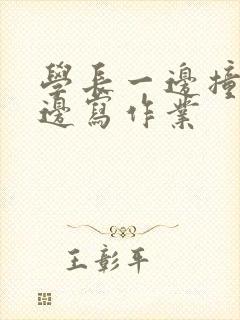 學長一邊撞
邊寫作業
王彰平